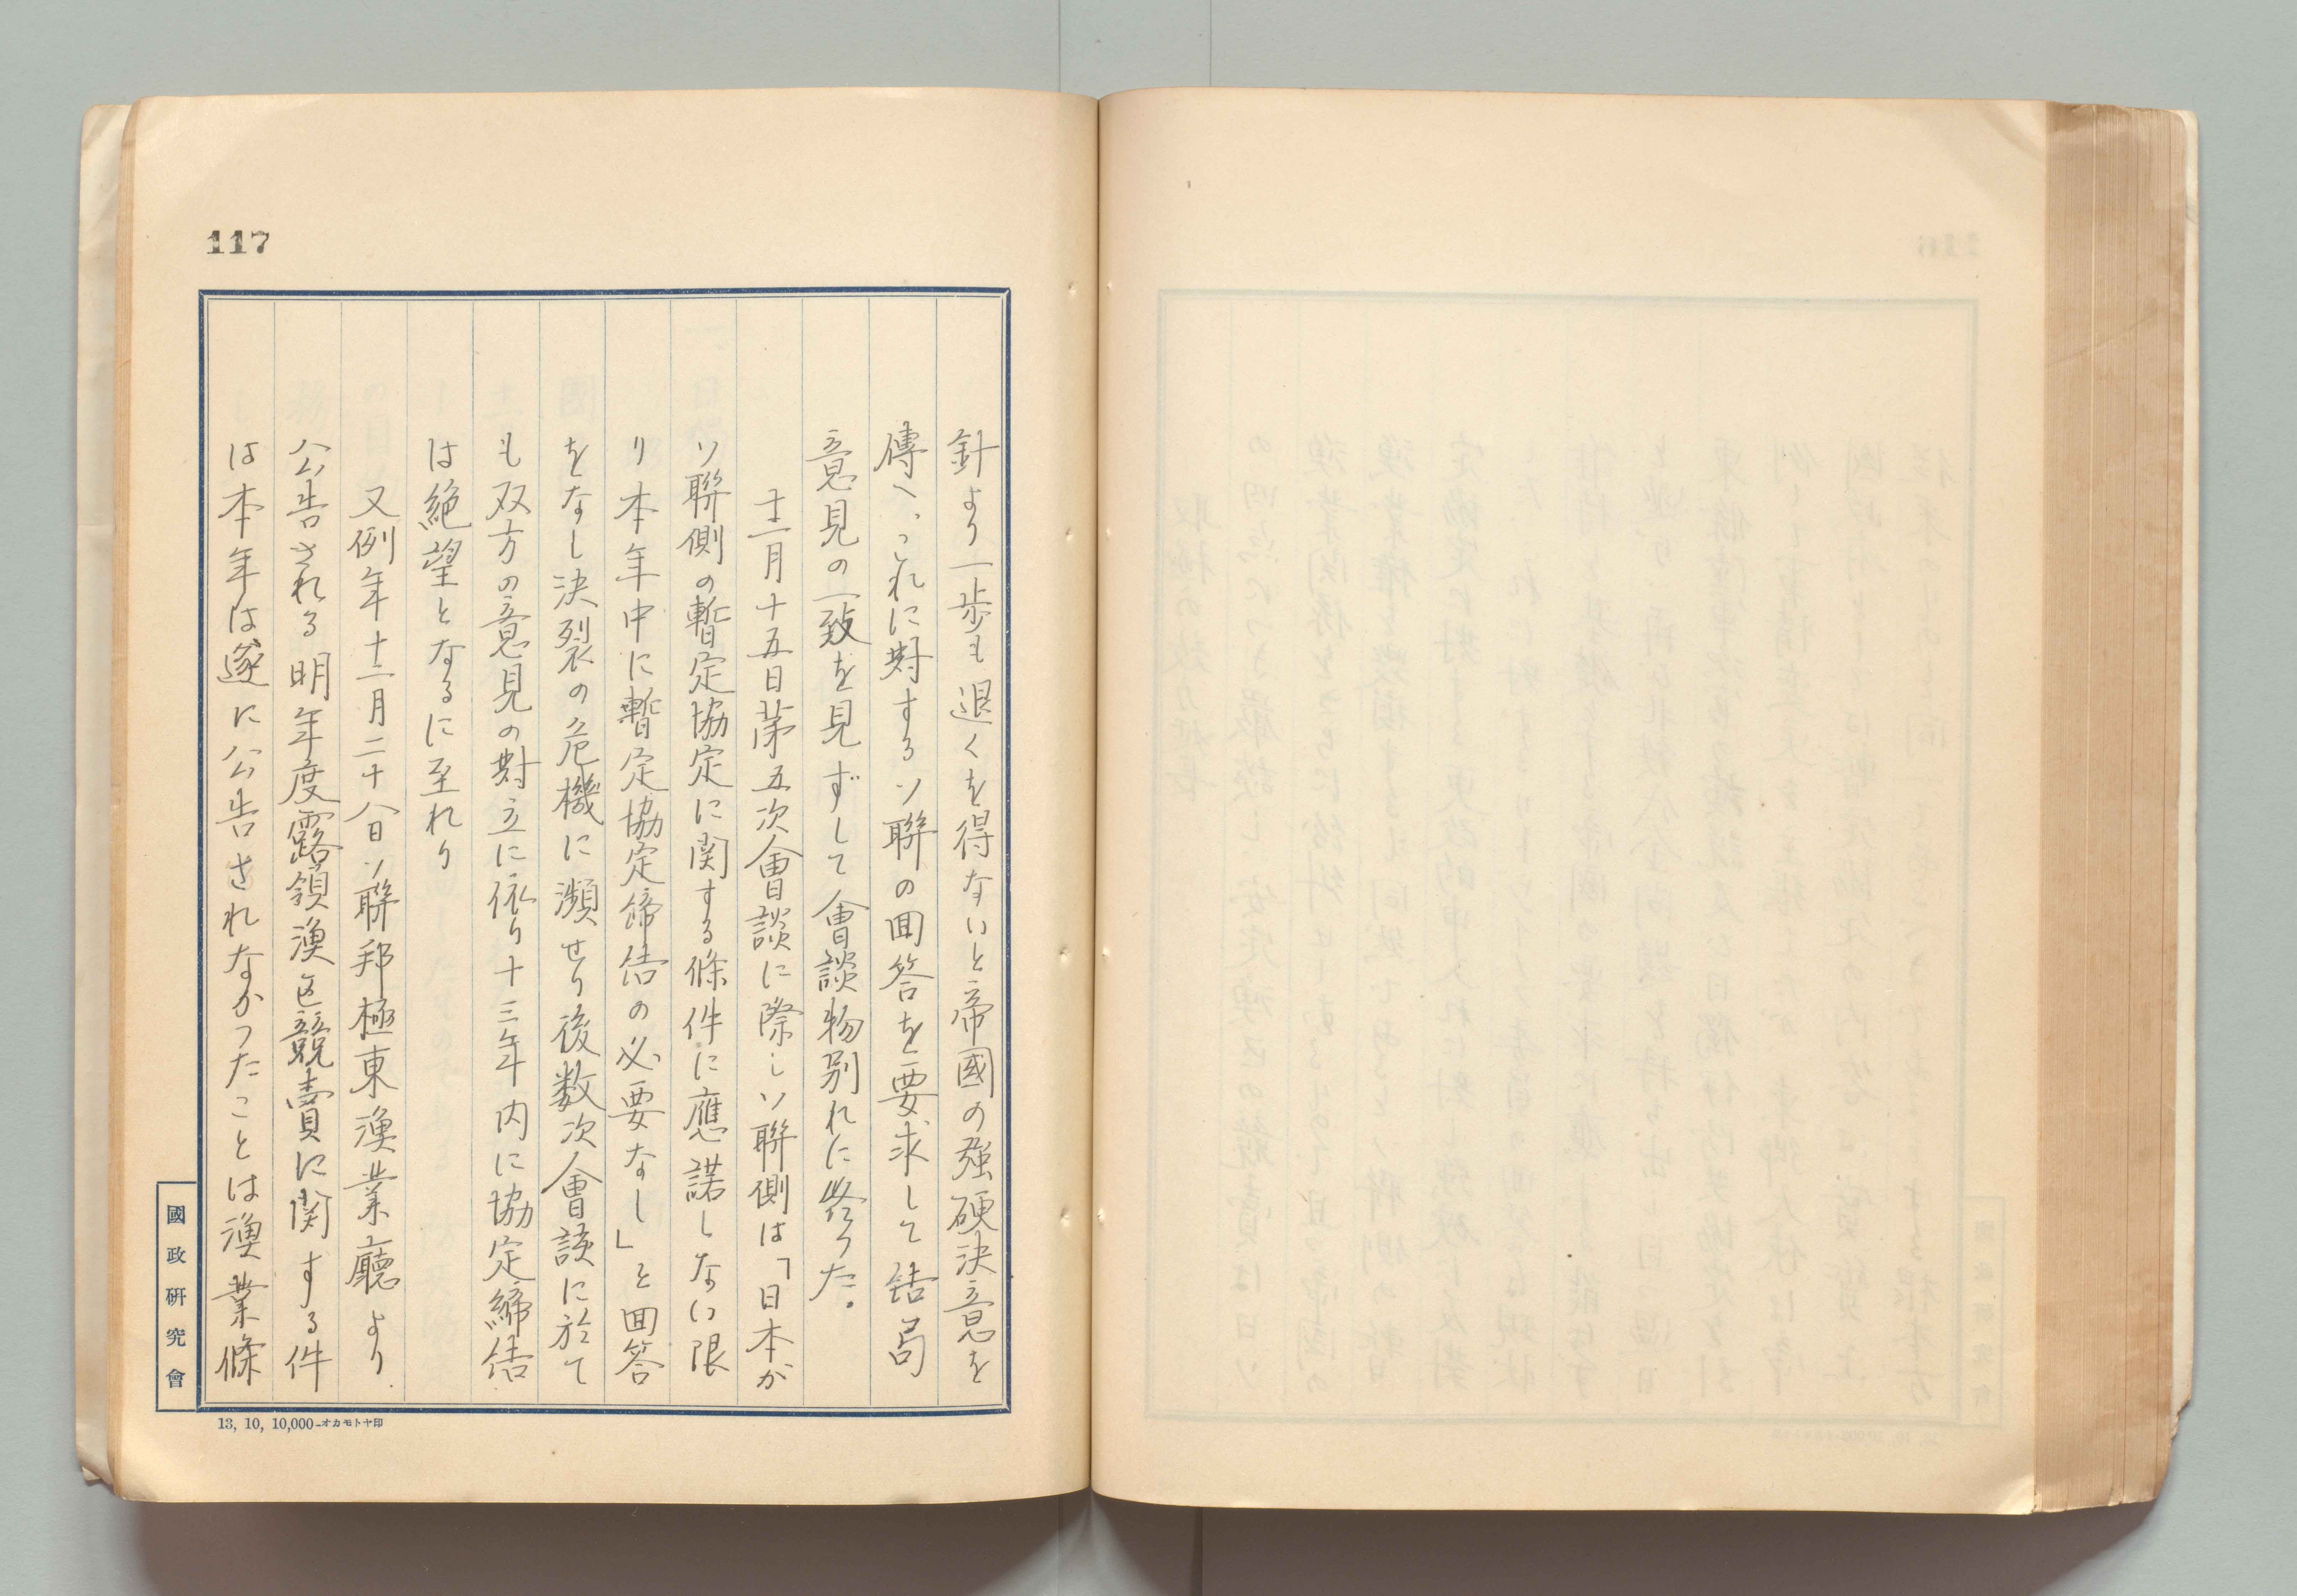 117
針より一歩も退くを得ないと帝國の強硬決意を
傳へ、これに對するソ聯の囬答を要求して結局
意見の一致を見ずして會談物別れに終つた。
十二月十五日第五次會談に際しソ聯側は「日本が
ソ聯側の暫定協定に関する條件に應諾しない限
り本年中に暫定協定締結の必要なし」と囬答
をなし決裂の危機に瀕せり後数次會談に於て
も双方の意見の對立に依り十三年内に協定締結
は絶望となるに至れり
又例年十二月二十八日ソ聯邦極東漁業廳より
公告される明年度露領漁区競賣に関する件
は本年は遂に公告されなかつたことは漁業條
國政研究會
13, 10, 10,000-オカモトヤ印